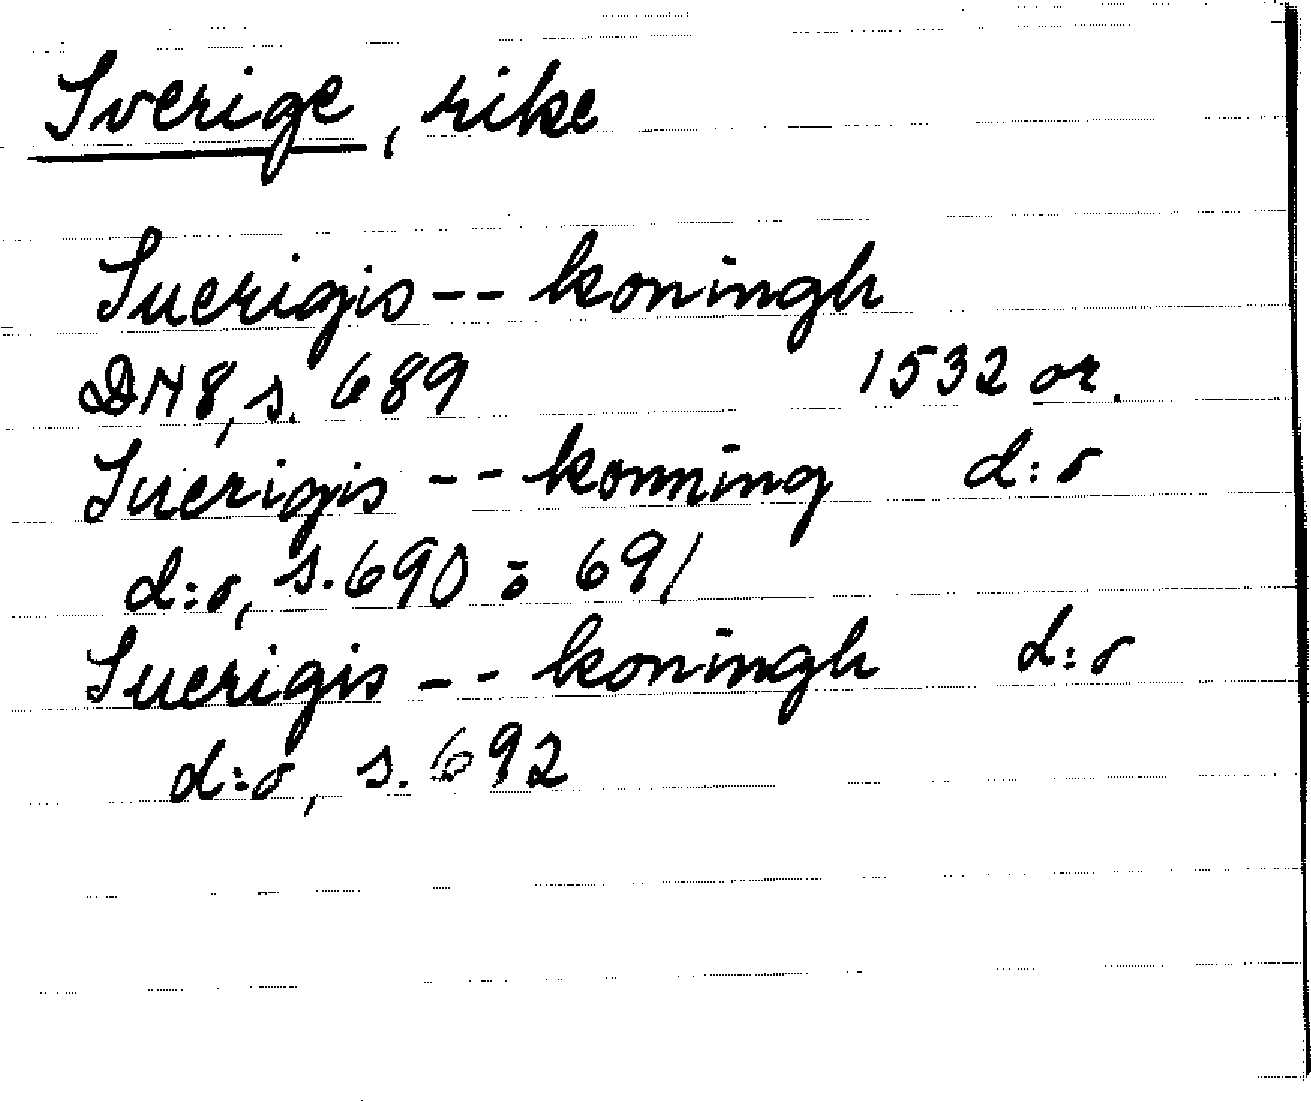 Sverige, rike
Suerigis -- koningh
DN8, s. 689 1532 or.
Suerigis -- konning d:o
d:o, s. 690 o 691
Suerigis -- koningh d:o
d:o, s. 692